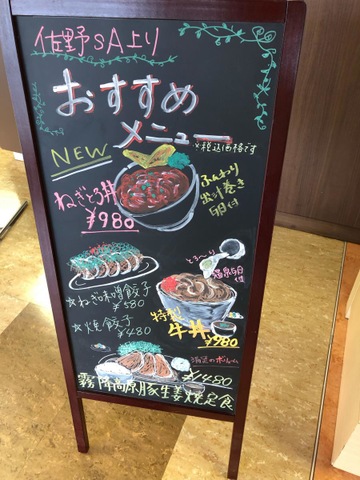 佐野SA上り
おすすめ
メニュー
※税込価格です
NEW
ねぎとろ丼
¥980
ふんわり
出汁巻き
付
とろ〜り
温泉
特製
牛丼
¥980
☆ねぎ味噌餃子
¥580
☆焼餃子
¥480
満足のボリューム
¥1480
霧降高原豚生姜焼定食